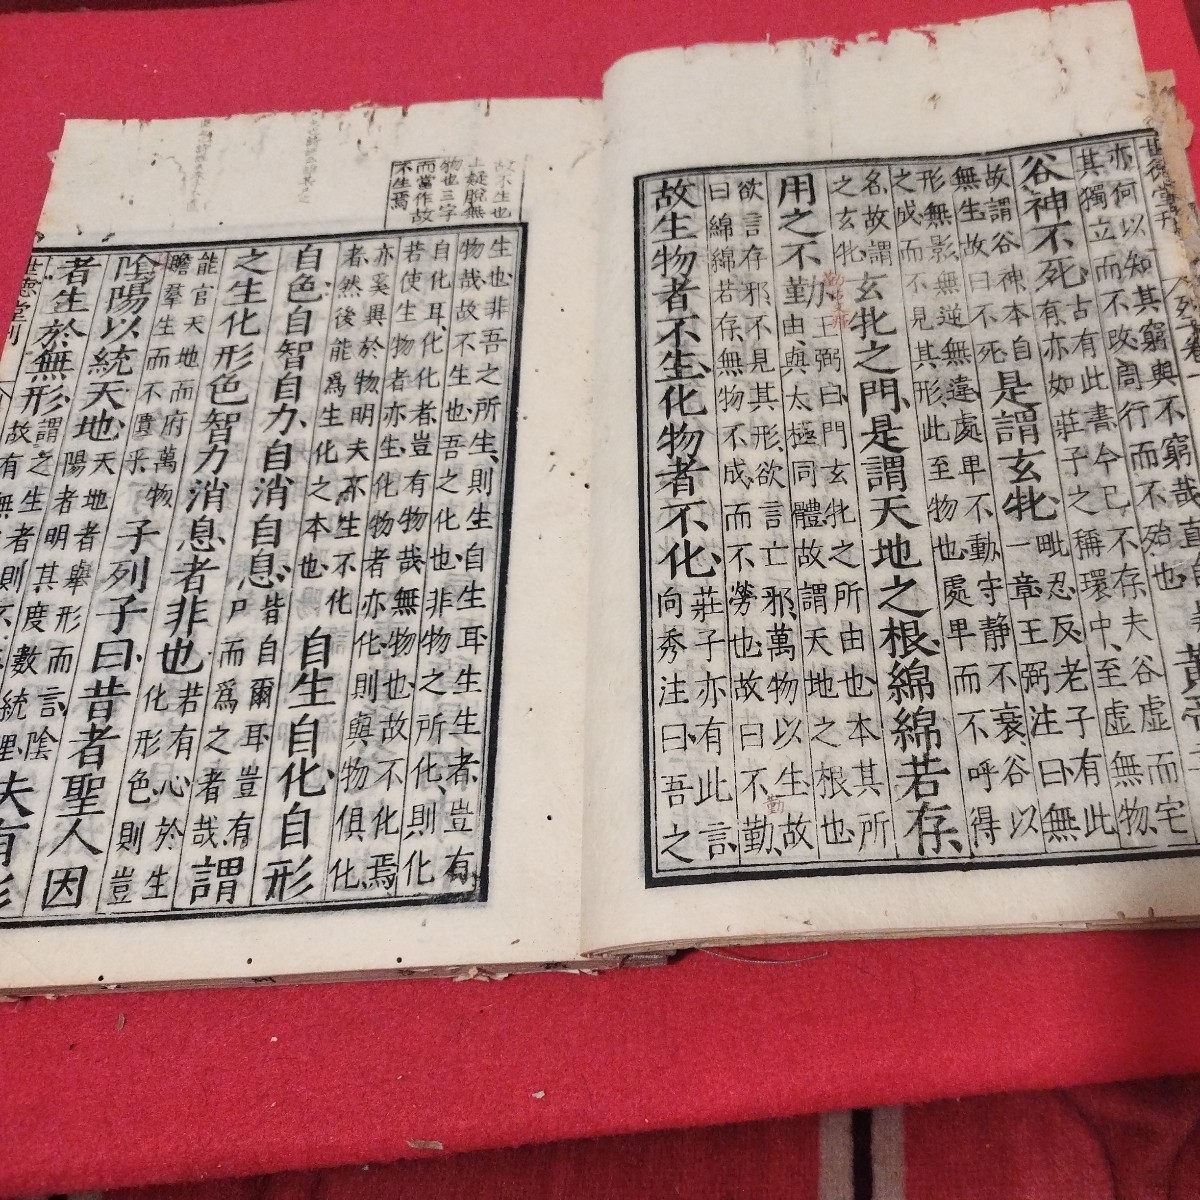 世德堂刊
列子卷一
亦何以知其窮與不窮哉直自
其獨立而不改周行而不殆也
黃帝
古有此書今已不存夫谷虛而宅
有亦如莊子之稱環中至虛無物
谷神不死
故謂谷神本自
無生故曰不死
是謂玄牝
一章王弼注曰無
毗忍反老子有此
形無影無逆無違處卑不動守静不衰谷以
之成而不見其形此至物也處卑而不呼得
名故謂
之玄牝
玄牝之門是謂天地之根綿綿若存
用之不勤
王弼曰門玄牝之所由也本其所
由與太極同體故謂天地之根也
欲言存邪不見其形欲言亡邪萬物以生故
曰綿綿若存無物不成而不勞也故曰不勤
勤
故生物者不生化物者不化
莊子亦有此言
向秀注曰吾之
故不生也
上疑脫無
物也三字
而當作故
不生焉
生也非吾之所生則生自生耳生生者豈有
物哉故不生也吾之化也非物之所化則化
自化耳化化者豈有物哉無物也故不化焉
若使生物者亦生化物者亦化則與物俱化
亦奚異於物明夫不生不化
者然後能爲生化之本也
自生自化自形
自色自智自力自消自息
皆自爾耳豈有
尸而爲之者哉
謂
之生化形色智力消息者非也
若有心於生
化形色則豈
能官天地而府萬物
瞻羣生而不遺乎
子列子曰昔者聖人因
陰陽以統天地
天地者舉形而言陰
陽者明其度數統理
夫有形
者生於無形
謂之生者則不
故有無
世德堂刊